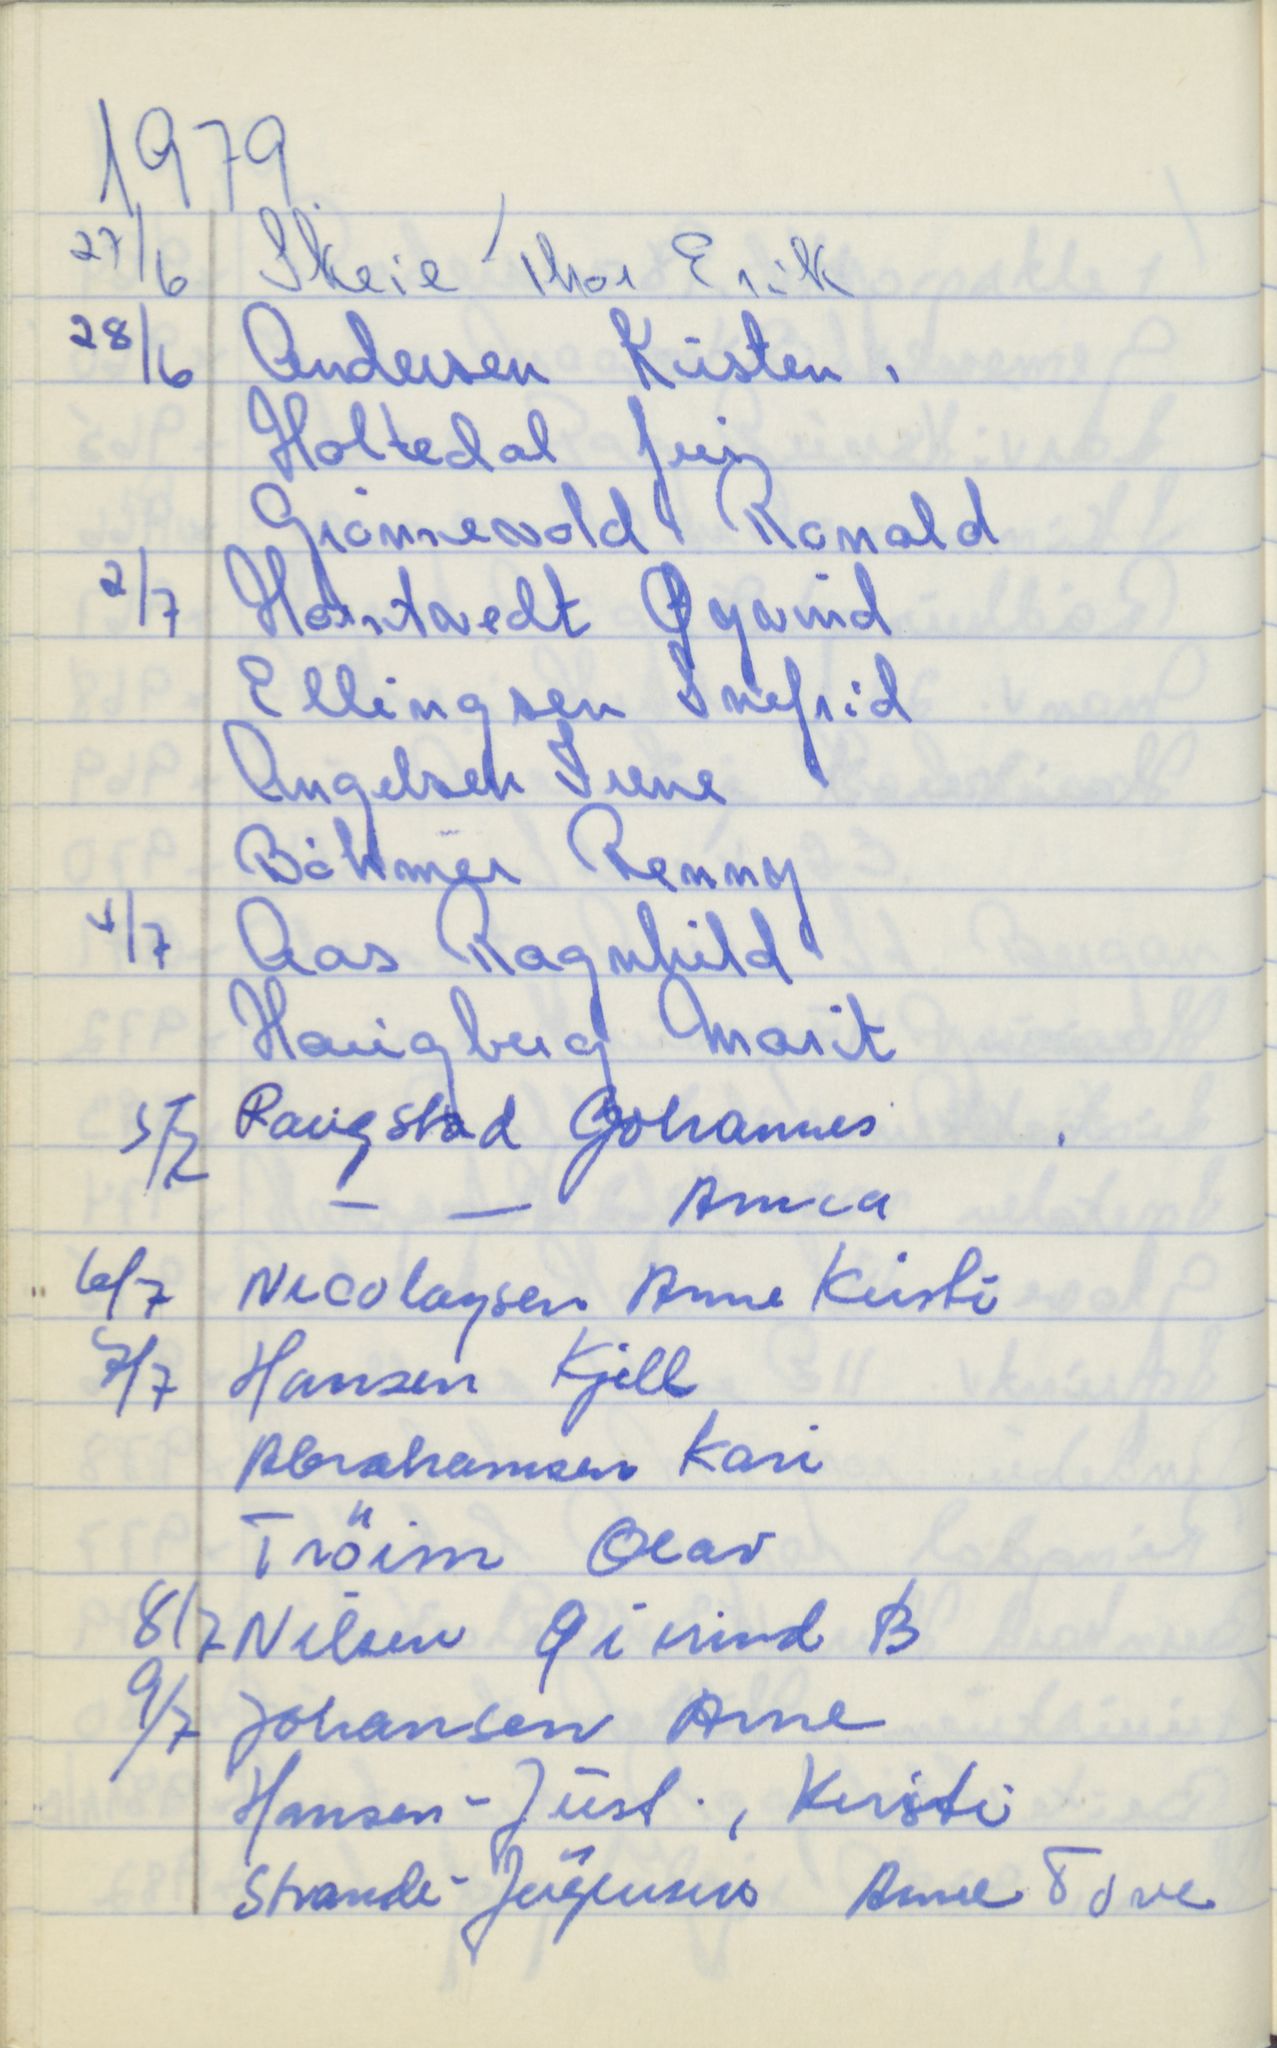 1979
27/6 Skeie Thor Erik
28/6 Andersen Kirsten.
Holtedal
Grönnevold Ronald
2/7 Horntvedt Øyvind
Ellingsen Snefrid
Angelsen Irene
Böhmer Renny
4/7 Aas Ragnhild
Haugberg Marit
5/7 Raugstad Johannes
— — Anna
6/7 Nicolaysen Anne Kirsti
7/7 Hansen Kjell
Abrahamsen Kari
Tröim Olav
8/7 Nilsen Øivind B
9/7 Johansen Arne
Hansen-Just., Kirsti
Strande-Jörgensen Anne Tove